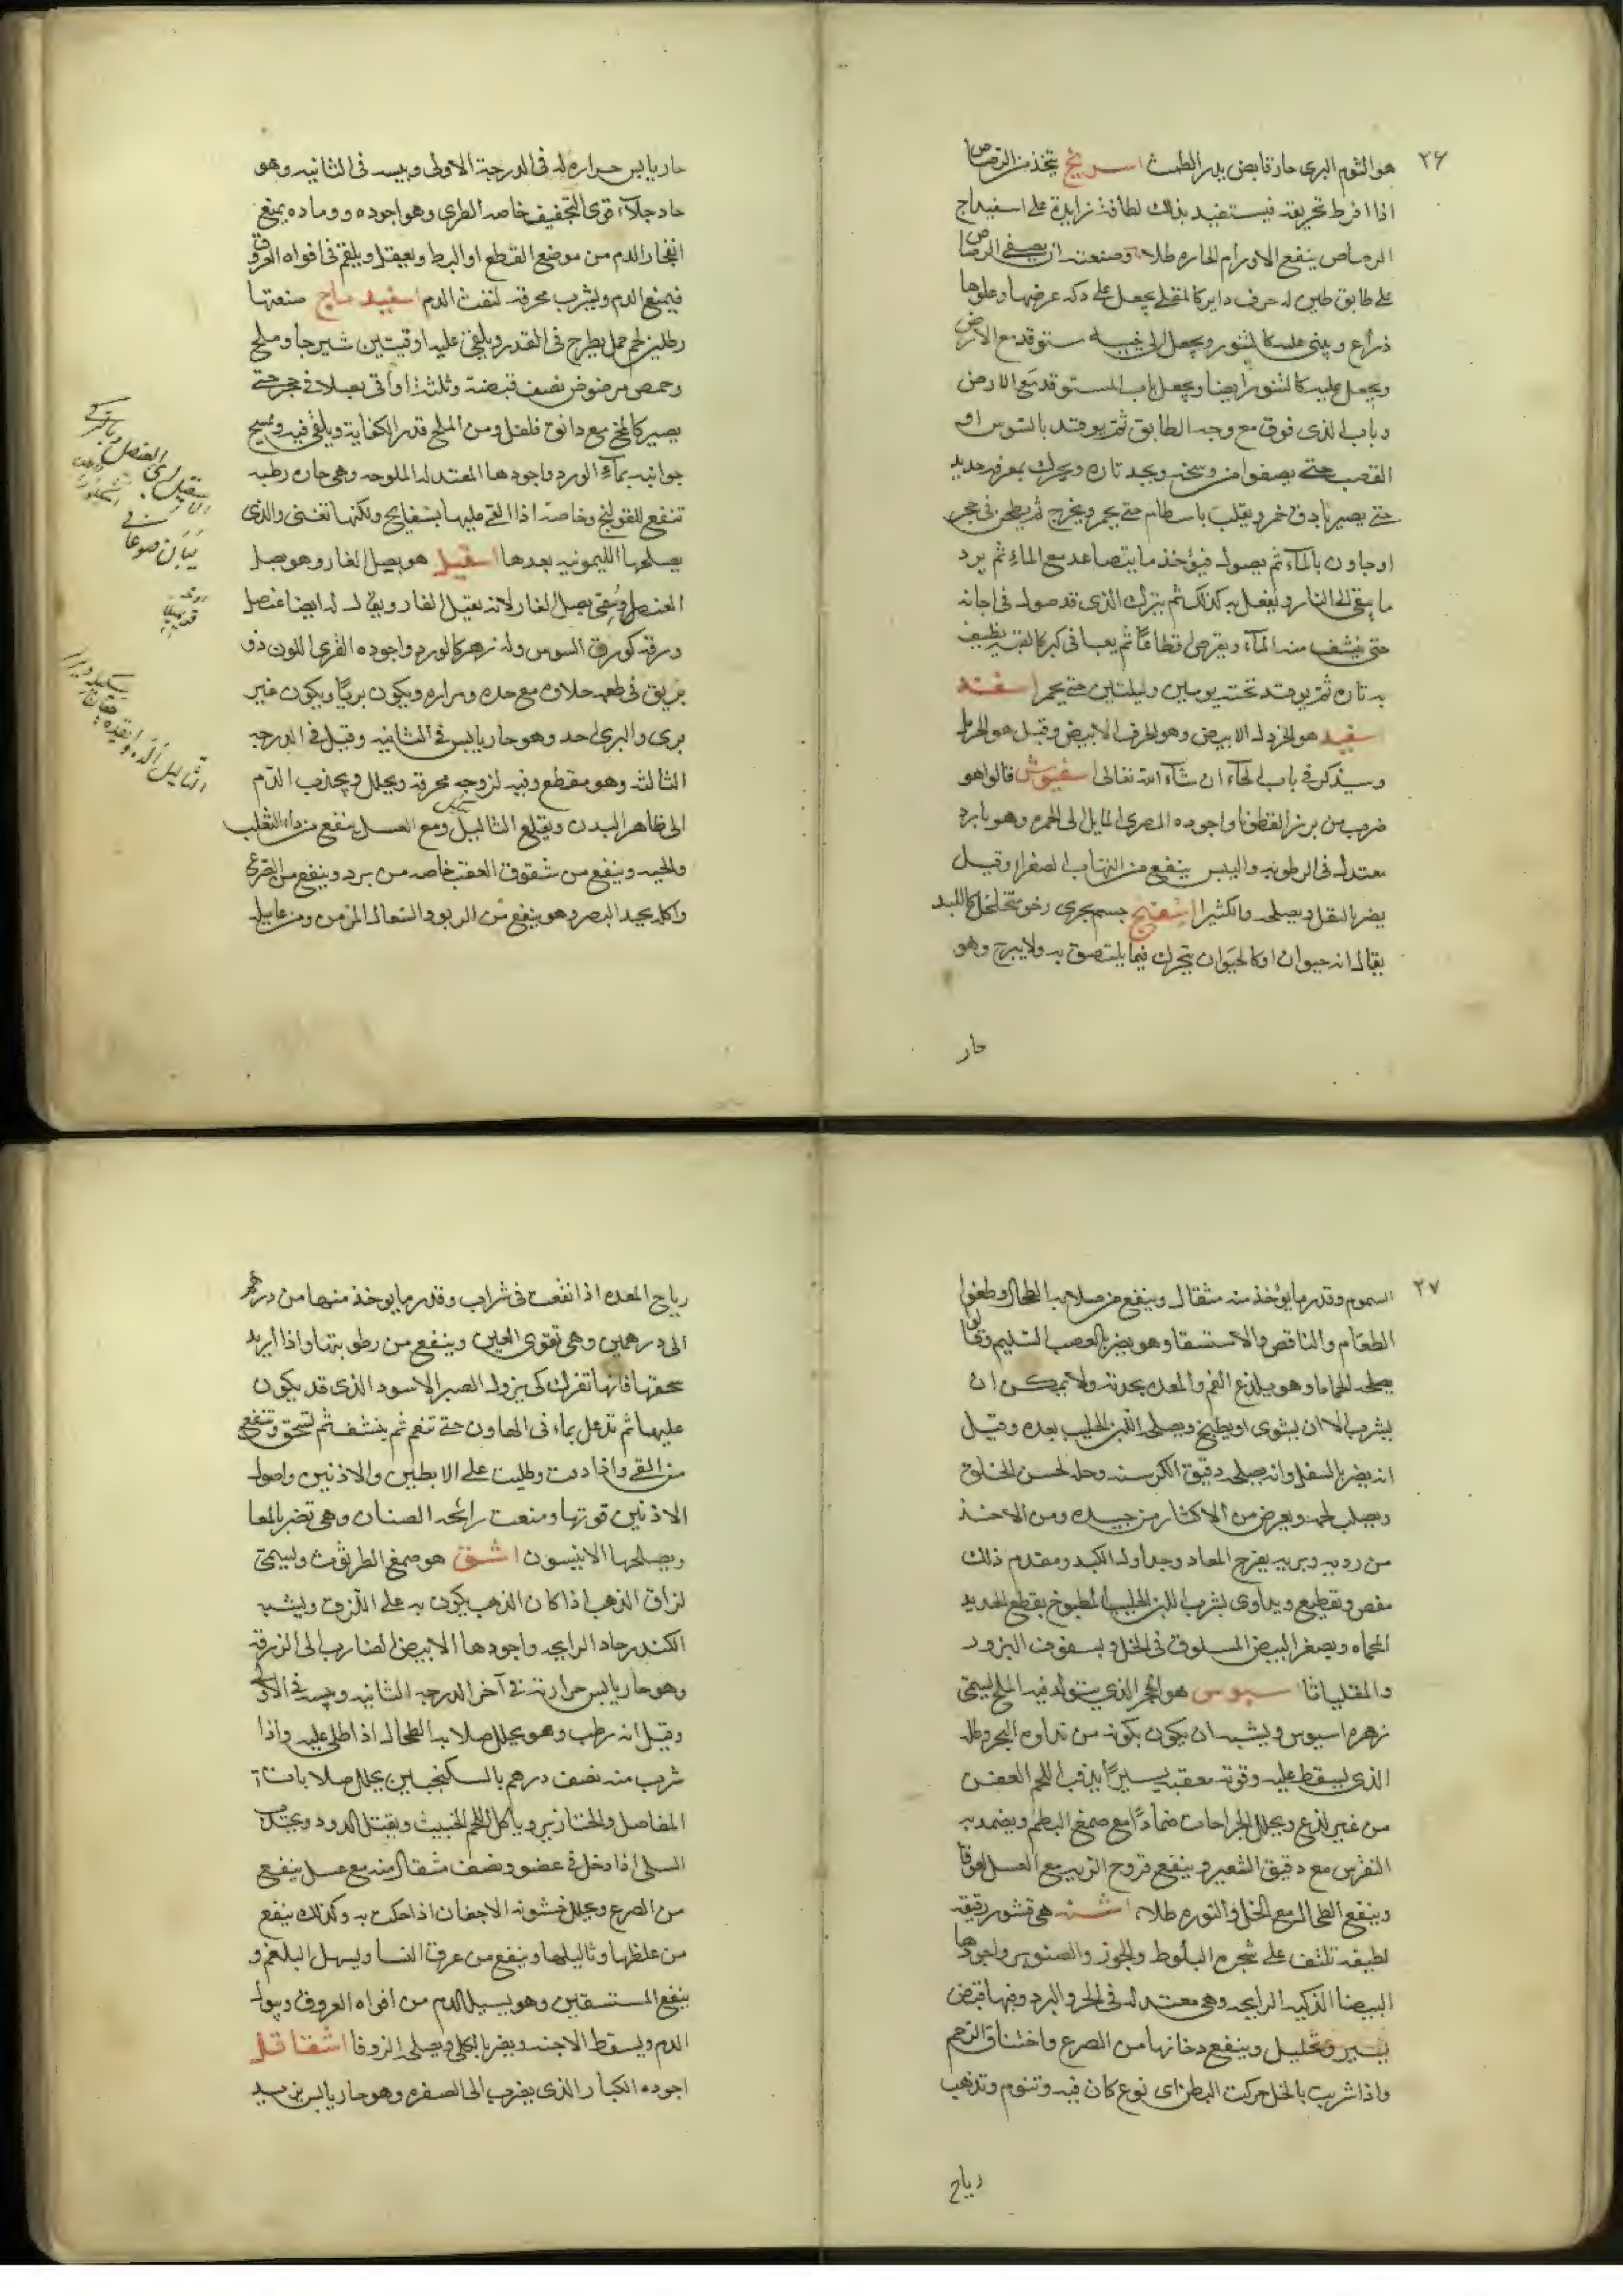 ٢٦
هو الثوم البرى حار قابض يدر الطمث اسرنج يتخذ من الرصاص
اذا افرط تحريقه فيستفيد بذلك لطافة زايدة على اسفيداج
الرصاص ينفع الاورام الحاره طلاء وصنعته ان يصفى الرصاص
على طابق طين له حرف داير كالمقلى يجعل على دكه عرضها وعلوها
ذراع ويبنى عليه كالتنور ويجعل الى ستوقد مع الارض
ويجعل عليه كالتنور ايضا ويجعل باب المستوقد مع الارض
وباب الذى فوق مع وجه الطابق ثم يوقد بالسوس او
القصب حتى يصفوا من وسخه ويجد ناره ويحرك بمغرفه حديد
حتى يصير ثم ويقلب باسطام حتى يحمر ويخرج ثم يطحن فى حجر
او هاون بالماء ثم يصول فيؤخذ ما يتصاعد مع الماء ثم يرد
ما بقى الى النار ويفعل به كذلك ثم يترك الذى قد صول فى اجانه
حتى ينشف منه الماء ويقرص قطاعا ثم يعبا فى
به ناره ثم يوقد تحته يومين وليلتين حتى يحمر اسفند
اسفيد هو الخردل الابيض وهو الحرف الابيض وقيل هو الحرمل
وسيذكر فى باب الحاء ان شاء الله تعالى اسفيوش قالوا هو
ضرب من بزر القطونا واجوده المصرى المايل الى الحمره وهو بارد
معتدل فى الرطوبه واليبس ينفع من التهاب الصفرا وقيل
يضر بالثفل ويصلحه الكثيرا اسفنج جسم بحرى رخو متخلخل كاللبد
يقال انه حيوان او كالحيوان يتحرك فيما يلتصق به ولا يبرح وهو
حار
حار يابس حرارته فى الدرجة الاولى ويبسه فى الثانيه وهو
حاد جلاء قوى التجفيف خاصه الطرى وهو اجوده ورماده يمنع
انفجار الدم من موضع القطع او البط ويعقل ويلقم فى افواه العروق
فيمنع الدم ويشرب محرقه لنفث الدم اسفيد باج صنعتها
رطلين لحم حمل يطرح فى القدر ويلقى عليه اوقيتين شيرجا وملح
وحمص مرضوض نصف قبضة وثلثة اواقى بصلا فى حجر حتى
يصير كالمخ مع دانق فلفل ومن الملح قدر الكفاية ويلقى فيه ويمسح
جوانبه بماء الورد واجودها المعتدله الملوحه وهى حاره رطبه
تنفع للقولنج وخاصة اذا القى عليها بسفايج ولكنها تغثى والذى
يصلحها الليمونيه بعدها اسقيل هو بصل الفار وهو بصل
العنصل وسمى بصل الفار لانه يقتل الفار ويقال له ايضا عنصل
ورقه كورق السوس وله زهر كالورد واجوده القرى اللون ذو
بريق فى طعمه حلاوه مع حده ومراره ويكون بريا ويكون غير
برى والبرى احد وهو حار يابس فى الثانيه وقيل فى الدرجه
الثالثه وهو مقطع وفيه لزوجه محرقه ويحلل ويجذب الدم
الى ظاهر البدن ويقلع الثاليل ومع العسل ينفع من داء الثعلب
والحيه وينفع من شقوق العقب خاصه من برد وينفع من الصرع
واكله يحد البصر وهو ينفع من الربو والسعال المزمن ومن غايله
٢٧
السموم وقدر ما يؤخذ منه مثقال وينفع من صلابه الطحال وطفوا
الطعام والنافض والاستسقا وهو يضر بالعصب السليم وقالوا
يصلحه الحماما وهو يلذع الفم والمعده بحدته ولا يمكن ان
يشرب الا ان يشوى او يطبخ ويصلحه اللبن الحليب بعده وقيل
انه يضر بالسفل وانه يصلحه دقيق الكرسنه وخله يحسن الخلق
ويصلب لحمه ويعرض من الاكثار من جيده ومن الاخذ
من رديه وبريه يقرح المعا وجداول الكبد ومقدم ذلك
مغص وتقطيع ويداوى بشرب اللبن الحليب المطبوخ بقطع الحديد
المحماه وبصفر البيض المسلوق فى الخل وبسفوف البزور
والمقلياثا اسيوس هو الحجر الذى يتولد فيه الملح ليسمى
زهره اسيوس ويشبه ان يكون بكونه من نداوه البحر وطله
الذى يسقط عليه وقوته معفنه يسيرا يذهب اللحم العفن
من غير لذع ويحلل الجراحات ضمادا مع صمغ البطم ويضمد به
النقرس مع دقيق الشعير وينفع قروح الريه مع العسل لعوقا
وينفع الطحال مع الخل والنوره طلاء اشنه هى قشور رقيقه
لطيفه تلتف على شجره البلوط والجوز والصنوبر واجودها
البيضا الذكيه الرايحه وهى معتدله فى الحر والبرد وفيها قبض
يسير وتحليل وينفع دخانها من الصرع واختناق الرحم
واذا شربت بالخل حركت البطن اى نوع كان فيه وتنوم وتذهب
رياح
رياح المعده اذا نقعت فى شراب وقدر ما يوخذ منها من درهم
الى درهمين وهى تقوى العين وينفع من رطوبتها واذا اريد
سحقها فانها تفرك كى يزول الصبر الاسود الذى قد يكون
عليها ثم تدعك بماء فى الهاون حتى تنعم ثم ينشف ثم تسحق وتنفع
من القى واذا دقت وطليت على الابطين والاذنين واصول
الاذنين قوتها ومنعت رائحه الصنان وهى تضر بالمعا
ويصلحها الانيسون اشق هو صمغ الطرثوث وليسمى
لزاق الذهب اذا كان الذهب يكون به على اللزوق ويشبه
الكندر حاد الرايحه واجودها الابيض الضارب الى الزرقه
وهو حار يابس حرارته فى آخر الدرجه الثانيه ويبسه فى الاولى
وقيل انه رطب وهو يحلل صلابه الطحال اذا طلى عليه واذا
شرب منه نصف درهم بالسكنجبين يحلل صلابات
المفاصل والخنازير وياكل اللحم الخبيث ويقتل الدود ويجذب
السلى اذا دخل فى عضو ونصف مثقال منه مع عسل ينفع
من الصرع ويحلل خشونه الاجفان اذا حكت به وكذلك ينفع
من غلظها وثاليلها وينفع من عرق النسا ويسهل البلغم و
ينفع المستسقين وهو يسيل الدم من افواه العروق ويبول
الدم ويسقط الاجنه ويضر بالكلى ويصلحه الزوفا اشقاقل
اجوده الكبار الذى يضرب الى الصفره وهو حار يابس يزيد